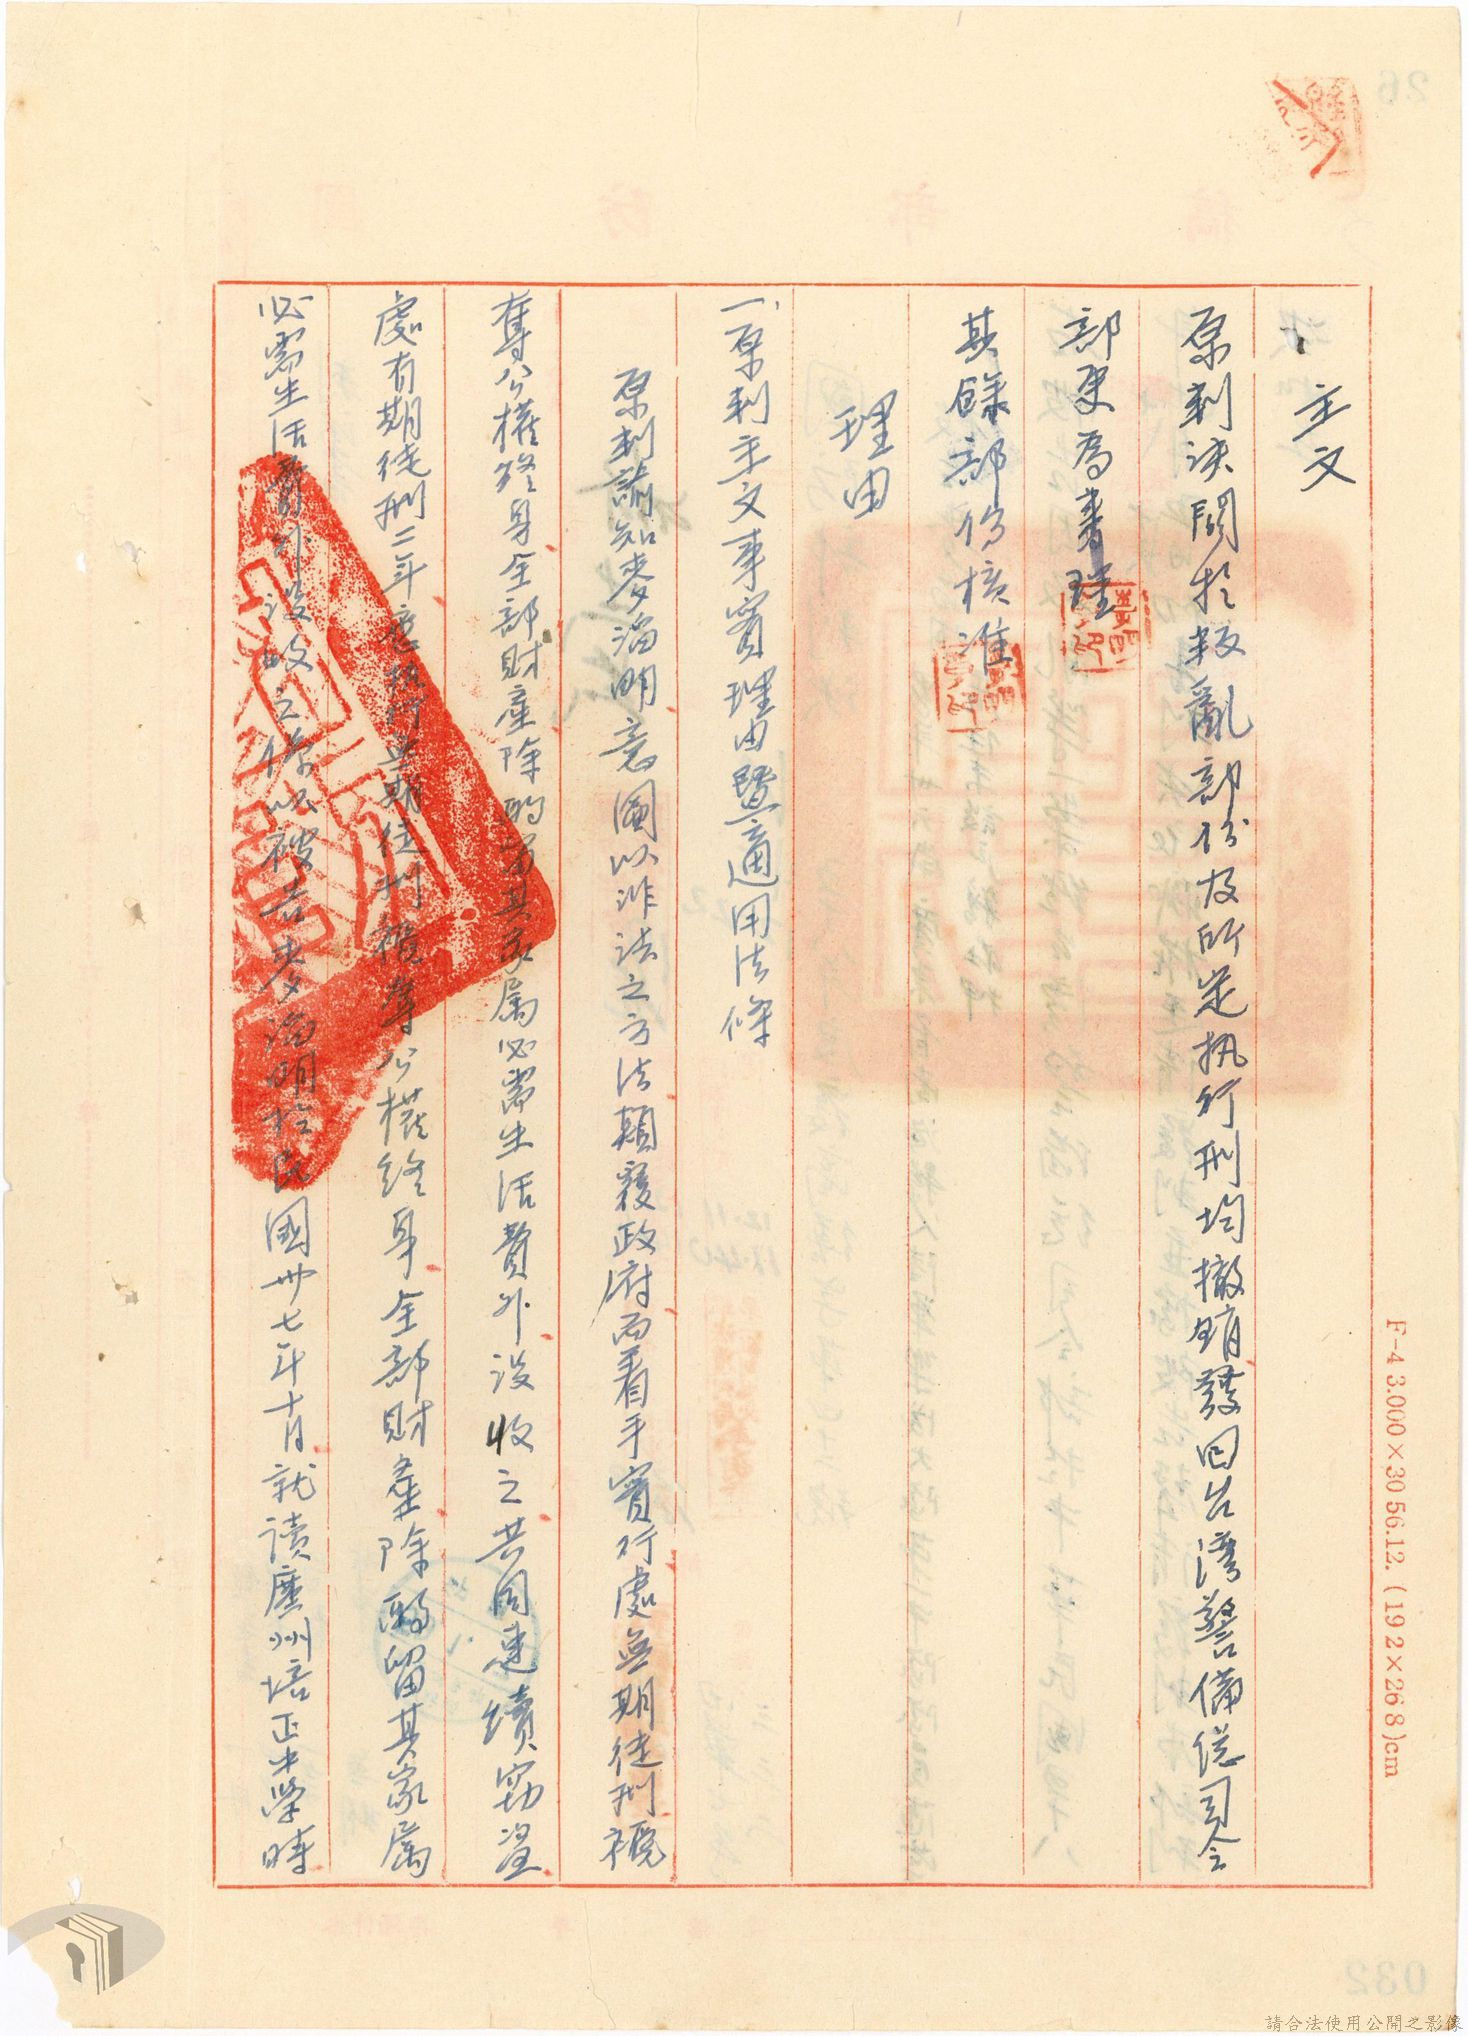 主文
原判決關於叛亂部份及所定執行刑均撤銷發回台湾警备總司令
部更為審理
其餘部份核准
理由
一、原判主文事實理由暨適用法條
原判諭知麥滔明意圖以非法之方法顛覆政府而着手實行處無期徒刑褫
奪公權終身全部財產除酌留其家属必需生活費外沒收之共同連續竊盜
處有期徒刑二年應執行無期徒刑褫奪公權終身全部財產除酌留其家属
必需生活費外沒收之係以被告麥滔明於民國卅七年十月就讀廣州培正中學時
F-4 3.000×30 56.12. (192×268)cm
請合法使用公開之影像